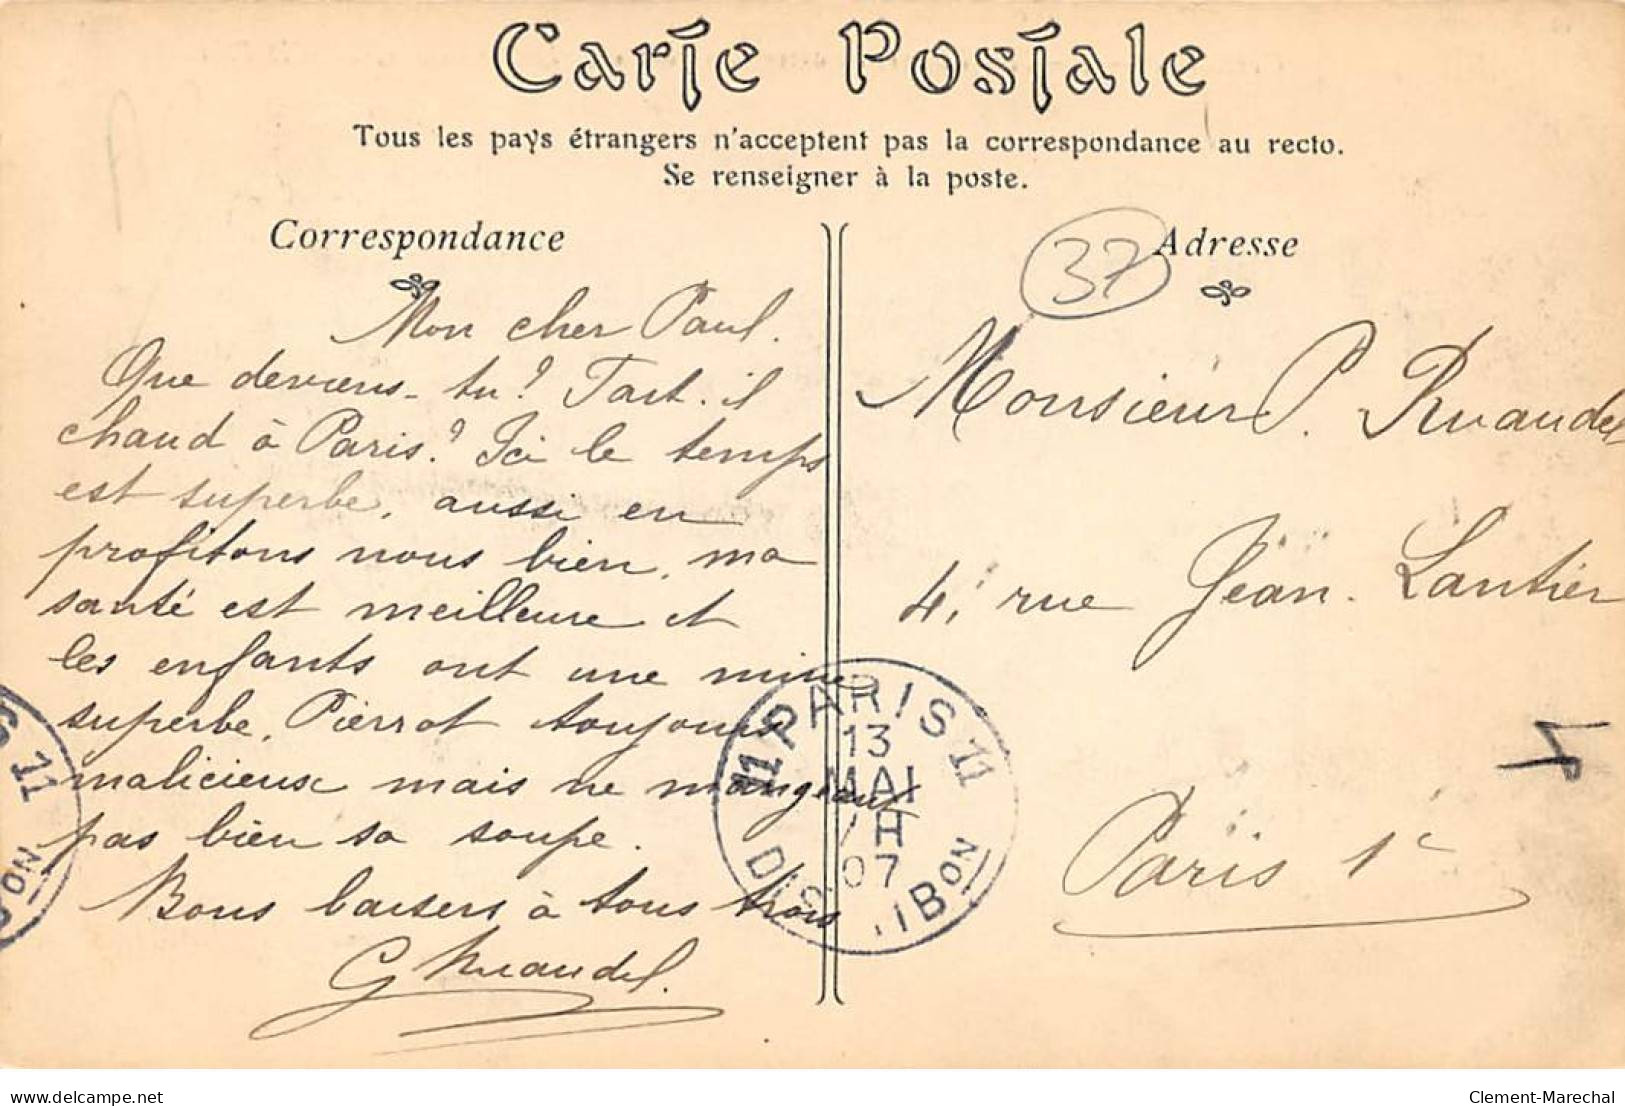 Carte Postale
Tous les pays étrangers n'acceptent pas la correspondance au recto.
Se renseigner à la poste.
Correspondance
Mon cher Paul.
Que deviens-tu? Fait-il
chaud à Paris? Ici le temps
est superbe, aussi en
profitons nous bien, ma
santé est meilleure et
les enfants ont une mine
superbe, Pierrot toujours
malicieux mais ne mangeant
pas bien sa soupe.
Bons baisers à tous trois
G Ruaudel.
37
Adresse
Monsieur P. Ruaudel
4, rue Jean-Lantier
Paris 1e
PARIS 11
11
13
MAI
07
DISTRIBON
11
ON
delcampe.net
Clement-Marechal